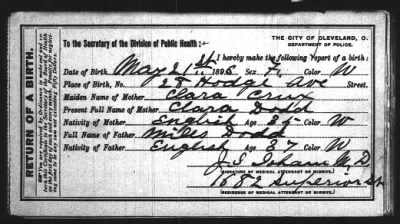 THE CITY OF CLEVELAND, O.
DEPARTMENT OF POLICE.
To the Secretary of the Division of Public Health:
I hereby make the following report of a birth:
Date of Birth, May 21st 1896 Sex F. Color W
Place of Birth, No. 28 Hodge Ave Street.
Maiden Name of Mother Clara Crup
Present Full Name of Mother Clara Dodd
Nativity of Mother English Age 35 Color W
Full Name of Father Miles Dodd
Nativity of Father English Age 37 Color W
J. S. Isham M.D.
(SIGNATURE OF MEDICAL ATTENDANT OR MIDWIFE.)
1582 Superior st
(RESIDENCE OF MEDICAL ATTENDANT OR MIDWIFE.)
RETURN OF A BIRTH.